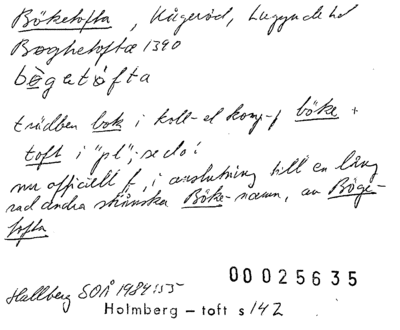 Böketofta, Kågeröd, Luggude hd
Boghetoftæ 1390
bögetofta
trädben bok i koll-el komp-f böke +
toft i "pl"; se do!
nu officiellt f, i anslutning till en lång
rad andra skånska Böke-namn, av Böge-
tofta
Hallberg SOÅ 1984:55
00025635
Holmberg – toft s 142